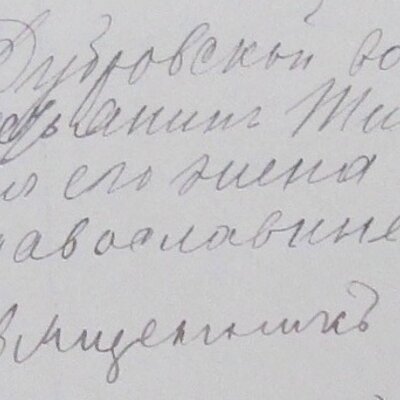 Дубровской во
крестьянинъ Ти
и его жена
православные
Священникъ